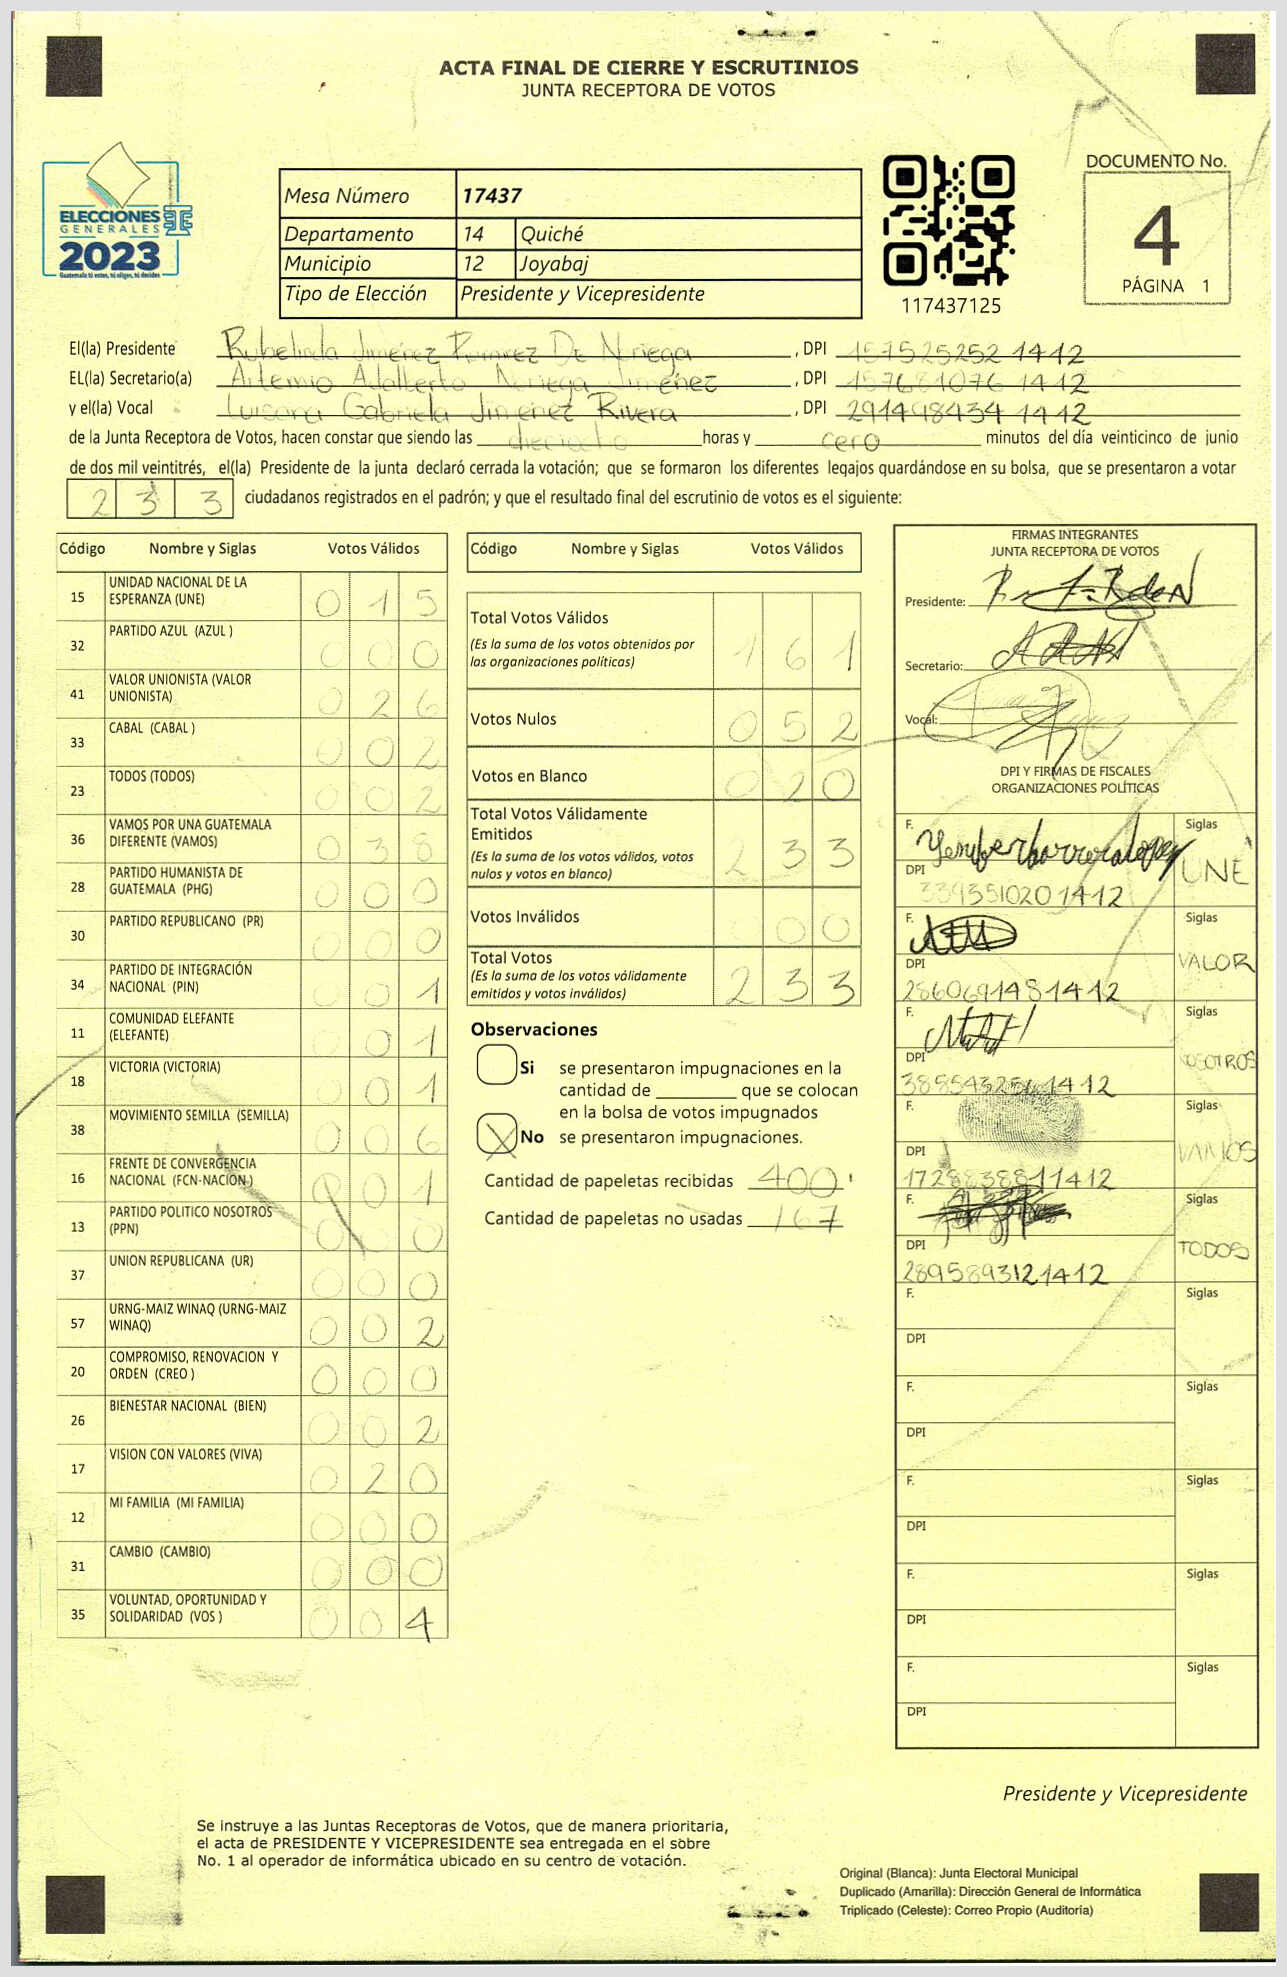 ACTA FINAL DE CIERRE Y ESCRUTINIOS
JUNTA RECEPTORA DE VOTOS
ELECCIONES
GENERALES
2023
Guatemala tú votes, tú eliges, tú decides
Mesa Número 17437
Departamento 14 Quiché
Municipio 12 Joyabaj
Tipo de Elección Presidente y Vicepresidente
117437125
DOCUMENTO No.
4
PÁGINA 1
El(la) Presidente Rubelinda Jiménez Ramirez De Noriega, DPI 157525252 1412
EL(la) Secretario(a) Artemio Adalberto Noriega Jiménez, DPI 157681076 1412
y el(la) Vocal Luisana Gabriela Jiménez Rivera, DPI 291498434 1412
de la Junta Receptora de Votos, hacen constar que siendo las dieciocho horas y cero minutos del día veinticinco de junio
de dos mil veintitrés, el(la) Presidente de la junta declaró cerrada la votación; que se formaron los diferentes legajos guardándose en su bolsa, que se presentaron a votar
2 3 3 ciudadanos registrados en el padrón; y que el resultado final del escrutinio de votos es el siguiente:
Código Nombre y Siglas Votos Válidos
15 UNIDAD NACIONAL DE LA ESPERANZA (UNE) 0 1 5
32 PARTIDO AZUL (AZUL ) 0 0 0
41 VALOR UNIONISTA (VALOR UNIONISTA) 0 2 6
33 CABAL (CABAL ) 0 0 2
23 TODOS (TODOS) 0 0 2
36 VAMOS POR UNA GUATEMALA DIFERENTE (VAMOS) 0 3 8
28 PARTIDO HUMANISTA DE GUATEMALA (PHG) 0 0 0
30 PARTIDO REPUBLICANO (PR) 0 0 0
34 PARTIDO DE INTEGRACIÓN NACIONAL (PIN) 0 0 1
11 COMUNIDAD ELEFANTE (ELEFANTE) 0 0 1
18 VICTORIA (VICTORIA) 0 0 1
38 MOVIMIENTO SEMILLA (SEMILLA) 0 0 6
16 FRENTE DE CONVERGENCIA NACIONAL (FCN-NACION ) 0 0 1
13 PARTIDO POLITICO NOSOTROS (PPN) 0 0 0
37 UNION REPUBLICANA (UR) 0 0 0
57 URNG-MAIZ WINAQ (URNG-MAIZ WINAQ) 0 0 2
20 COMPROMISO, RENOVACION Y ORDEN (CREO ) 0 0 0
26 BIENESTAR NACIONAL (BIEN) 0 0 2
17 VISION CON VALORES (VIVA) 0 2 0
12 MI FAMILIA (MI FAMILIA) 0 0 0
31 CAMBIO (CAMBIO) 0 0 0
35 VOLUNTAD, OPORTUNIDAD Y SOLIDARIDAD (VOS ) 0 0 4
Código Nombre y Siglas Votos Válidos
Total Votos Válidos 1 6 1
(Es la suma de los votos obtenidos por
las organizaciones políticas)
Votos Nulos 0 5 2
Votos en Blanco 0 2 0
Total Votos Válidamente
Emitidos 2 3 3
(Es la suma de los votos válidos, votos
nulos y votos en blanco)
Votos Inválidos 0 0
Total Votos 2 3 3
(Es la suma de los votos válidamente
emitidos y votos inválidos)
Observaciones
Si se presentaron impugnaciones en la
cantidad de ________ que se colocan
en la bolsa de votos impugnados
X No se presentaron impugnaciones.
Cantidad de papeletas recibidas 400
Cantidad de papeletas no usadas 167
FIRMAS INTEGRANTES
JUNTA RECEPTORA DE VOTOS
Presidente:
Secretario:
Vocal:
DPI Y FIRMAS DE FISCALES
ORGANIZACIONES POLÍTICAS
F. Siglas
DPI UNE
339351020 1412
F. Siglas
DPI VALOR
286069148 1412
F. Siglas
DPI NOSOTROS
1412
F. Siglas
DPI VAMOS
172883881 1412
F. Siglas
DPI TODOS
289589312 1412
F. Siglas
DPI
F. Siglas
DPI
F. Siglas
DPI
F. Siglas
DPI
F. Siglas
DPI
Presidente y Vicepresidente
Se instruye a las Juntas Receptoras de Votos, que de manera prioritaria,
el acta de PRESIDENTE Y VICEPRESIDENTE sea entregada en el sobre
No. 1 al operador de informática ubicado en su centro de votación.
Original (Blanca): Junta Electoral Municipal
Duplicado (Amarilla): Dirección General de Informática
Triplicado (Celeste): Correo Propio (Auditoría)